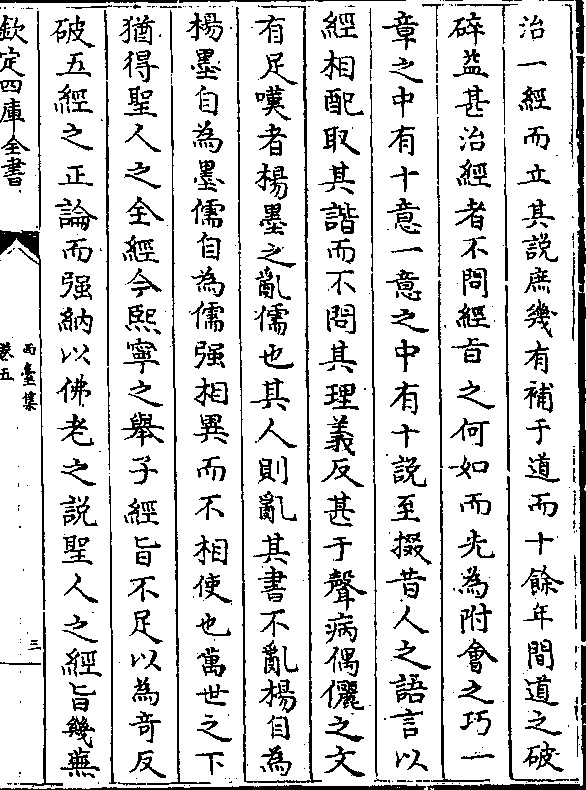 治一經而立其說庶幾有補于道而十餘年間道之破
碎益甚治經者不問經旨之何如而先為附會之巧一
章之中有十意一意之中有十說至掇昔人之語言以
經相配取其諧而不問其理義反甚于聲病偶儷之文
有足嘆者楊墨之亂儒也其人則亂其書不亂楊自為
楊墨自為墨儒自為儒强相異而不相使也萬世之下
猶得聖人之全經今熙寧之舉子經旨不足以為奇反
破五經之正論而强納以佛老之說聖人之經旨幾蕪
欽定四庫全書
西臺集
卷五
三